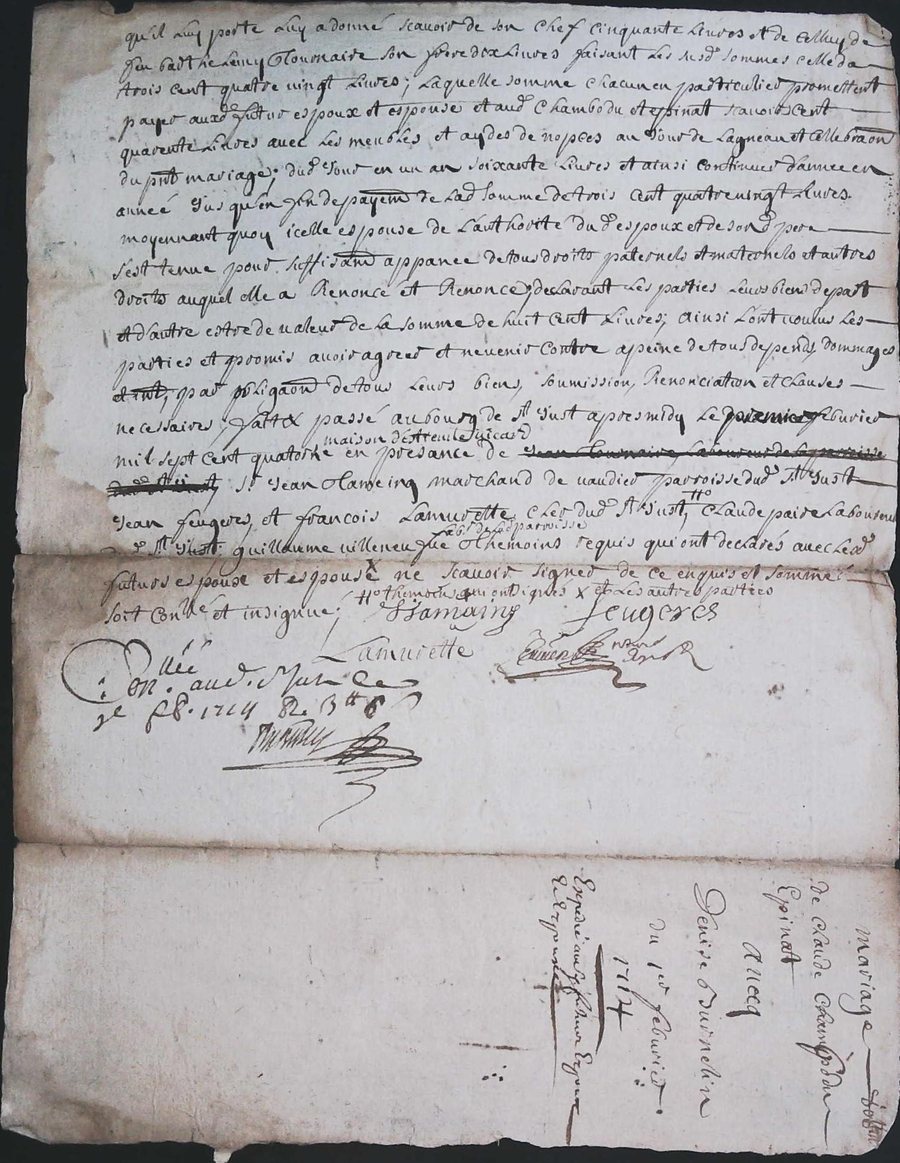 qu'il luy porte luy a donné scavoir de son chef cinquante livres et de celluy de
feu barthelemy Tournaire son frere dix livres faisant les susd sommes celle de
trois cent quatre vingt livres, laquelle somme chacun en particulier promettent
payer auxd futurs espoux et espouse et aud Chambodu et epinat scavoir cent
quarente livres avec les meubles et aydes de nopces au jour de lagneau et cellebraon
du pnt mariage, dud jour en un an soixante livres et ainsi continuer d'année en
année jusqu'en fin de payem de lad somme de trois cent quatre vingt livres
moyennant quoy icelle espouse de l'authorité du d espoux et de sond pere
s'est tenue pour suffisam appanee de tous droits paternels et maternels et autres
droits auquel elle a Renoncé et Renonce, declarant les parties leurs biens de part
et d'autre estre de valeur de la somme de huit cent livres; ainsi l'ont voulus les
parties et promis avoir agreer et ne venir contre a peine de tous depends, dommages
et int, par obligaon de tous leurs biens, soumission, Renonciation et clauses
necessaires, fait & passé au bourg de St Just apres midy le premier feburier
maison d'estienne
mil sept cent quatorze en presance de Jean Tournaire, laboureur de la parroisse
Sr Jean Hameing marchand de vaudier parroisse dud St Just
Jean feugeres, et françois Lamurette clerc dud St Just, Claude paire laboureur
labr de lad parroisse
dud St Just, guillaume villeneufve Themoins requis qui ont declarés avec lesd
futurs espoux et espouse ne scavoir signer de ce enquis et sommé
tto themoins qui ont signes x et les autres parties
soit conllé et insignué, Hameing feugeres
Lamurette
Conllé aud St Just le
fb. 1714 Re
mariage
de claude Chambodu
Epinat
avecq
Denise Burnelin
du 1er feburier
1714
Expédié aux futurs Espoux
et Espouse